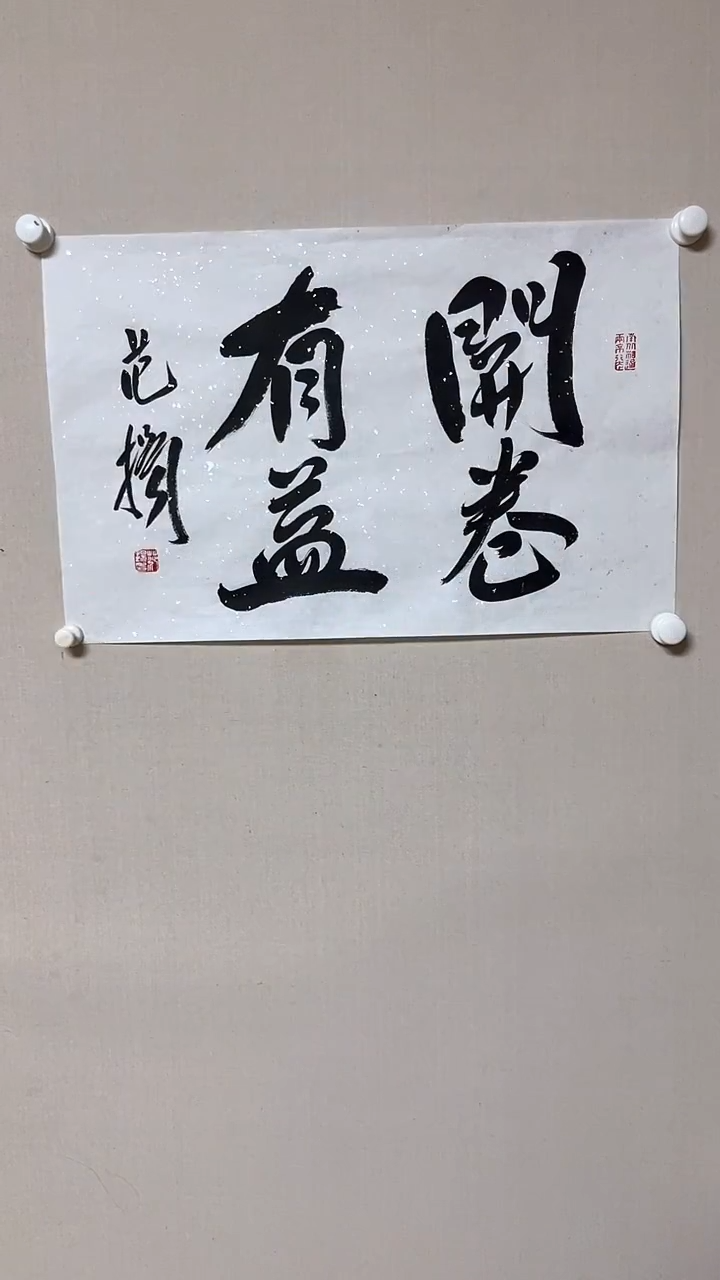 開卷
有益
范